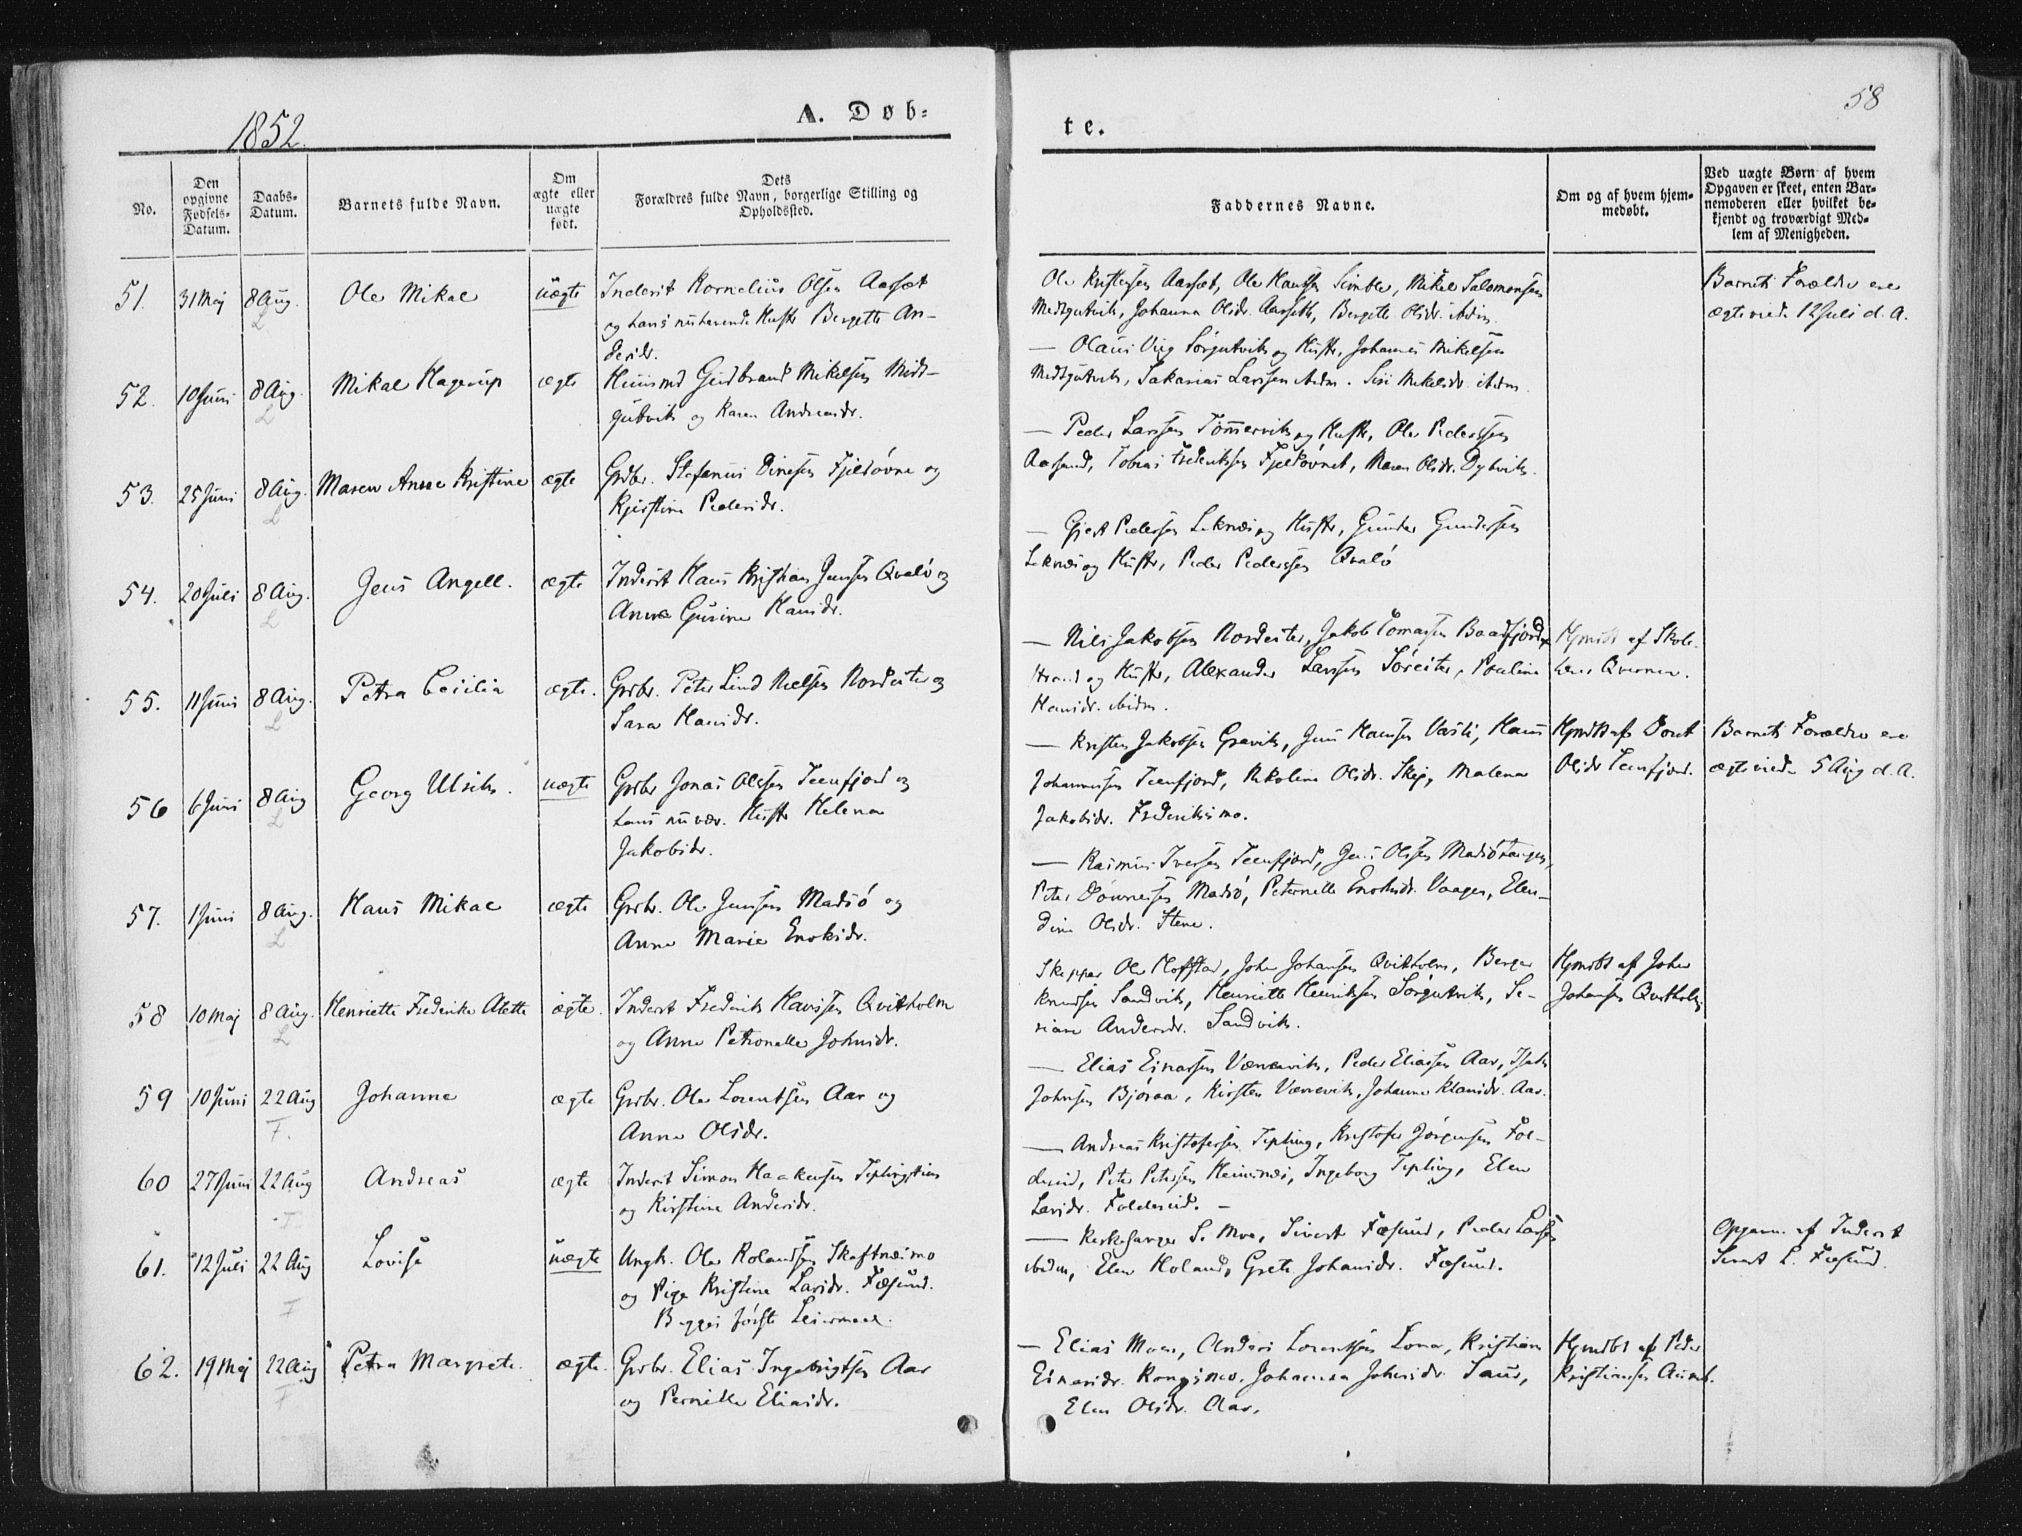 1852.
A. Døb-
te.
58
No.
Den opgivne Fødsels-Datum.
Daabs-Datum.
Barnets fulde Navn.
Om ægte eller uægte født.
Dets Forældres fulde Navn, borgerlige Stilling og Opholdssted.
Faddernes Navne.
Om og af hvem hjem-medøbt.
Ved uægte Børn af hvem Opgaven er skeet, enten Bar-nemoderen eller hvilket be-kjendt og troværdigt Med-lem af Menigheden.
51. 31 Maj 8 Aug. Ole Mikal uægte Inderst Kornelius Olsen Aasæt
og hans nuhavende Hustr Bergitte An-
dersdr.
Ole Aasæt, Ole Hansen Mikal Salomonsen
Johanna Olsdr. Aasæth, Bergitte Olsdr. ibidm.
Barnets Forældre ere
ægteviede 12 Juli d. A.
52. 10 Juni 8 Aug. Mikal Hagerup ægte Huusmd Gudbrand Mikelsen Midt-
gutvik og Karen Andreasdr.
— Olaus Vig Sørgutvik og Hustr, Johannes Mikelsen
Midtgutvik, Sakarias Larssen ibidm. Mikelsdr. ibidm.
53. 25 Juni 8 Aug. Maren Anne Kristine ægte Grdbr. Stefanus Dinesen Fjeldøvne og
Kjerstine Pedersdr.
— Peder Larssen Tømmervik og Hustr, Ole Pederssen
Aasund, Tobias Frederikssen Maren Olsdr. Dybvik.
54. 20 Juli 8 Aug. Jens Angell. ægte Inderst Hans Kristian Jensen Qvalø og
Anne Gurine Hansdr.
— Gjert Pedersen Leknæs og Hustr, Gunder Gundersen
Leknæs og Hustr, Peder Pederssen Qvalø
55. 11 Juni 8 Aug. Petra Cecilia ægte. Grdbr. Peter Lind Nielsen Nordester og
Sara Hansdr.
— Nils Jakobsen Nordester, Jakob Tomassen
og Hustr, Alexander Larssen Pauline
Hansdr. ibidm.
Hjmdbt af Skole-
56 6 Juni 8 Aug Georg Ulrik. uægte Grdbr Jonas Olsen Teenfjord og
hans nuvær. Hustr Helena
Jakobsdr.
— Kristen Jakobsen Grøvik, Jens Hansen Hans
Johannessen Teenfjord, Nikoline Olsdr. Malena
Jakobsdr. Frederiksmo.
Hjmdbt af
Olsdr Teenfjord.
Barnets Forældre ere
ægteviede 5 Aug d. A.
57. 1 Juni 8 Aug. Hans Mikal ægte Grdbr. Ole Jensen Madsø og
Anne Marie Enoksdr.
— Rasmus Iversen Teenfjord, Jens Olsen
Peter Madsø, Peternelle Enoksdr. Vaagen, Elen-
dine Olsdr. Stene.
58 10 Maj 8 Aug. Henriette Frederike Alette ægte. Inderst Frederik Hanssen Qvitholm
og Anne Petronelle Johnsdr.
Skipper Ole Hofstad, John Johansen Qvitholm, Berger
Knudsen Sandvik, Henriette Henriksen Sørgutvik, Se-
riane Andersdr. Sandvik.
Hjmdbt af John
Johansen Qvitholm
59 10 Juni 22 Aug Johanna ægte Grdbr. Ole Lorentsen Aar og
Anna Olsdr.
— Elias Einarsen Værrevik, Peder Eliassen Aar, Isak
Johnsen Bjøraa, Kirsten Værrevik, Johanna Klausdr. Aar.
60 27 Juni 22 Aug Andreas ægte Inderst Simon Haakensen
og Kirstine Andersdr.
— Andreas Kristofersen Tepling, Kristofer Jørgensen Fol-
dereid, Peter Petersen Heimnæs, Ingeborg Tepling, Elen
Larsdr. Foldereid. —
61. 12 Juli 22 Aug Lovise uægte Ungk. Ole Rolandsen Skaftnæsmo
og Pige Kristine Larsdr. Fæsund.
Begges første Leiermaal.
— Kirkesanger S. Moe, Sivert Fæsund, Peder Larsen
ibidm, Elen Holand, Grete Johansdr. Fæsund.
Opgivn. af Inderst
Sivert L. Fæsund.
62. 19 Maj 22 Aug Petra Margrete. ægte. Grdbr. Elias Ingebrigtsen Aar
og Pernille Eliasdr.
— Elias Moen, Anders Lorentsen Lona, Kristian
Einarsdr. Kongsmo, Johanna Johnsdr.
Elen Olsdr. Aar.
Hjmdbt af Peder
Kristiansen